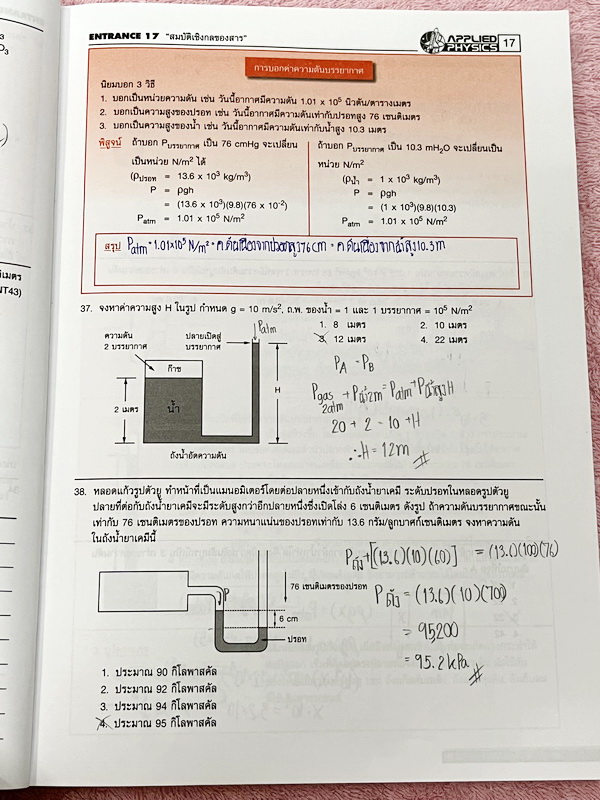 ENTRANCE 17 "สมบัติเชิงกลของสาร"
APPLIED PHYSICS 17
การบอกค่าความดันบรรยากาศ
นิยมบอก 3 วิธี
1. บอกเป็นหน่วยความดัน เช่น วันนี้อากาศมีความดัน 1.01 x 10⁵ นิวตัน/ตารางเมตร
2. บอกเป็นความสูงของปรอท เช่น วันนี้อากาศมีความดันเท่ากับปรอทสูง 76 เซนติเมตร
3. บอกเป็นความสูงของน้ำ เช่น วันนี้อากาศมีความดันเท่ากับน้ำสูง 10.3 เมตร
พิสูจน์ ถ้าบอก Pบรรยากาศ เป็น 76 cmHg จะเปลี่ยน
เป็นหน่วย N/m² ได้
(ρปรอท = 13.6 x 10³ kg/m³)
P = ρgh
= (13.6 x 10³)(9.8)(76 x 10⁻²)
Patm = 1.01 x 10⁵ N/m²
ถ้าบอก Pบรรยากาศ เป็น 10.3 mH₂O จะเปลี่ยนเป็น
หน่วย N/m²
(ρน้ำ = 1 x 10³ kg/m³)
P = ρgh
= (1 x 10³)(9.8)(10.3)
Patm = 1.01 x 10⁵ N/m²
สรุป Patm = 1.01×10⁵ N/m² = ค.ดันเนื่องจากปรอทสูง 76 cm = ค.ดันเนื่องจากน้ำสูง 10.3 m
37. จงหาค่าความสูง H ในรูป กำหนด g = 10 m/s², ถ.พ. ของน้ำ = 1 และ 1 บรรยากาศ = 10⁵ N/m²
1. 8 เมตร
2. 10 เมตร
3. 12 เมตร
4. 22 เมตร
ความดัน
2 บรรยากาศ
ปลายเปิดสู่
บรรยากาศ
Patm
ก๊าซ
น้ำ
2 เมตร
H
ถังน้ำอัดความดัน
PA = PB
Pgas + Pน้ำ2m = Patm + Pน้ำสูงH
2atm
20 + 2 = 10 + H
∴H = 12m
38. หลอดแก้วรูปตัวยู ทำหน้าที่เป็นแมนอมิเตอร์โดยต่อปลายหนึ่งเข้ากับถังน้ำยาเคมี ระดับปรอทในหลอดรูปตัวยู
ปลายที่ต่อกับถังน้ำยาเคมีจะมีระดับสูงกว่าอีกปลายหนึ่งซึ่งเปิดโล่ง 6 เซนติเมตร ดังรูป ถ้าความดันบรรยากาศขณะนั้น
เท่ากับ 76 เซนติเมตรของปรอท ความหนาแน่นของปรอทเท่ากับ 13.6 กรัม/ลูกบาศก์เซนติเมตร จงหาความดัน
ในถังน้ำยาเคมีนี้
P
76 เซนติเมตรของปรอท
6 cm
ปรอท
Pถัง = (13.6)(10)(700)
= 95,200
= 95.2 kPa
1. ประมาณ 90 กิโลพาสคัล
2. ประมาณ 92 กิโลพาสคัล
3. ประมาณ 94 กิโลพาสคัล
4. ประมาณ 95 กิโลพาสคัล